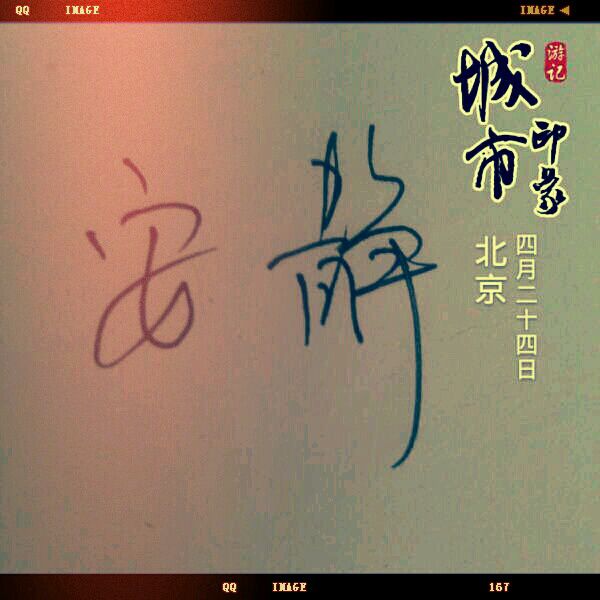 QQ IMAGE IMAGE
游记
城市印象
北京
四月二十四日
安静
QQ IMAGE 167